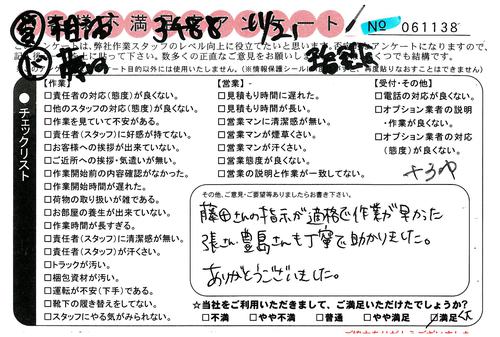 お客様不満足アンケート
№ 061138
このアンケートは、弊社作業スタッフのレベル向上に役立てたいと思います。
【作業】
□責任者の対応(態度)が良くない。
□他のスタッフの対応(態度)が良くない。
□作業を見ていて不安がある。
□責任者(スタッフ)に好感が持てない。
□お客様への挨拶が出来ていない。
□ご近所への挨拶・気遣いが無い。
□作業開始前の内容確認がなかった。
□作業開始時間が遅れた。
□荷物の取り扱いが雑である。
□お部屋の養生が出来ていない。
□作業時間が長すぎる。
□責任者(スタッフ)に清潔感が無い。
□責任者(スタッフ)が汗くさい。
□トラックが汚い。
□梱包資材が汚い。
□運転が不安(下手)である。
□靴下の履き替えをしてない。
□スタッフにやる気がみられない。
【営業】
□見積もり時間に遅れた。
□見積もり時間が長い。
□営業マンに清潔感が無い。
□営業マンが煙草くさい。
□営業マンが汗くさい。
□営業態度が良くない。
□営業の説明と作業が一致してない。
【受付・その他】
□電話の対応が良くない。
□オプション業者の説明
・作業が良くない。
□オプション業者の対応
(態度)が良くない。
●チェックリスト
その他、ご意見・ご要望等ありましたらお書き下さい。
藤田さんの指示が適格で作業が早かった
張さん、豊島さんも丁寧で助かりました。
ありがとうございました。
☆当社をご利用いただきまして、ご満足いただけたでしょうか?
□不満 □やや不満 □普通 □やや満足 □満足